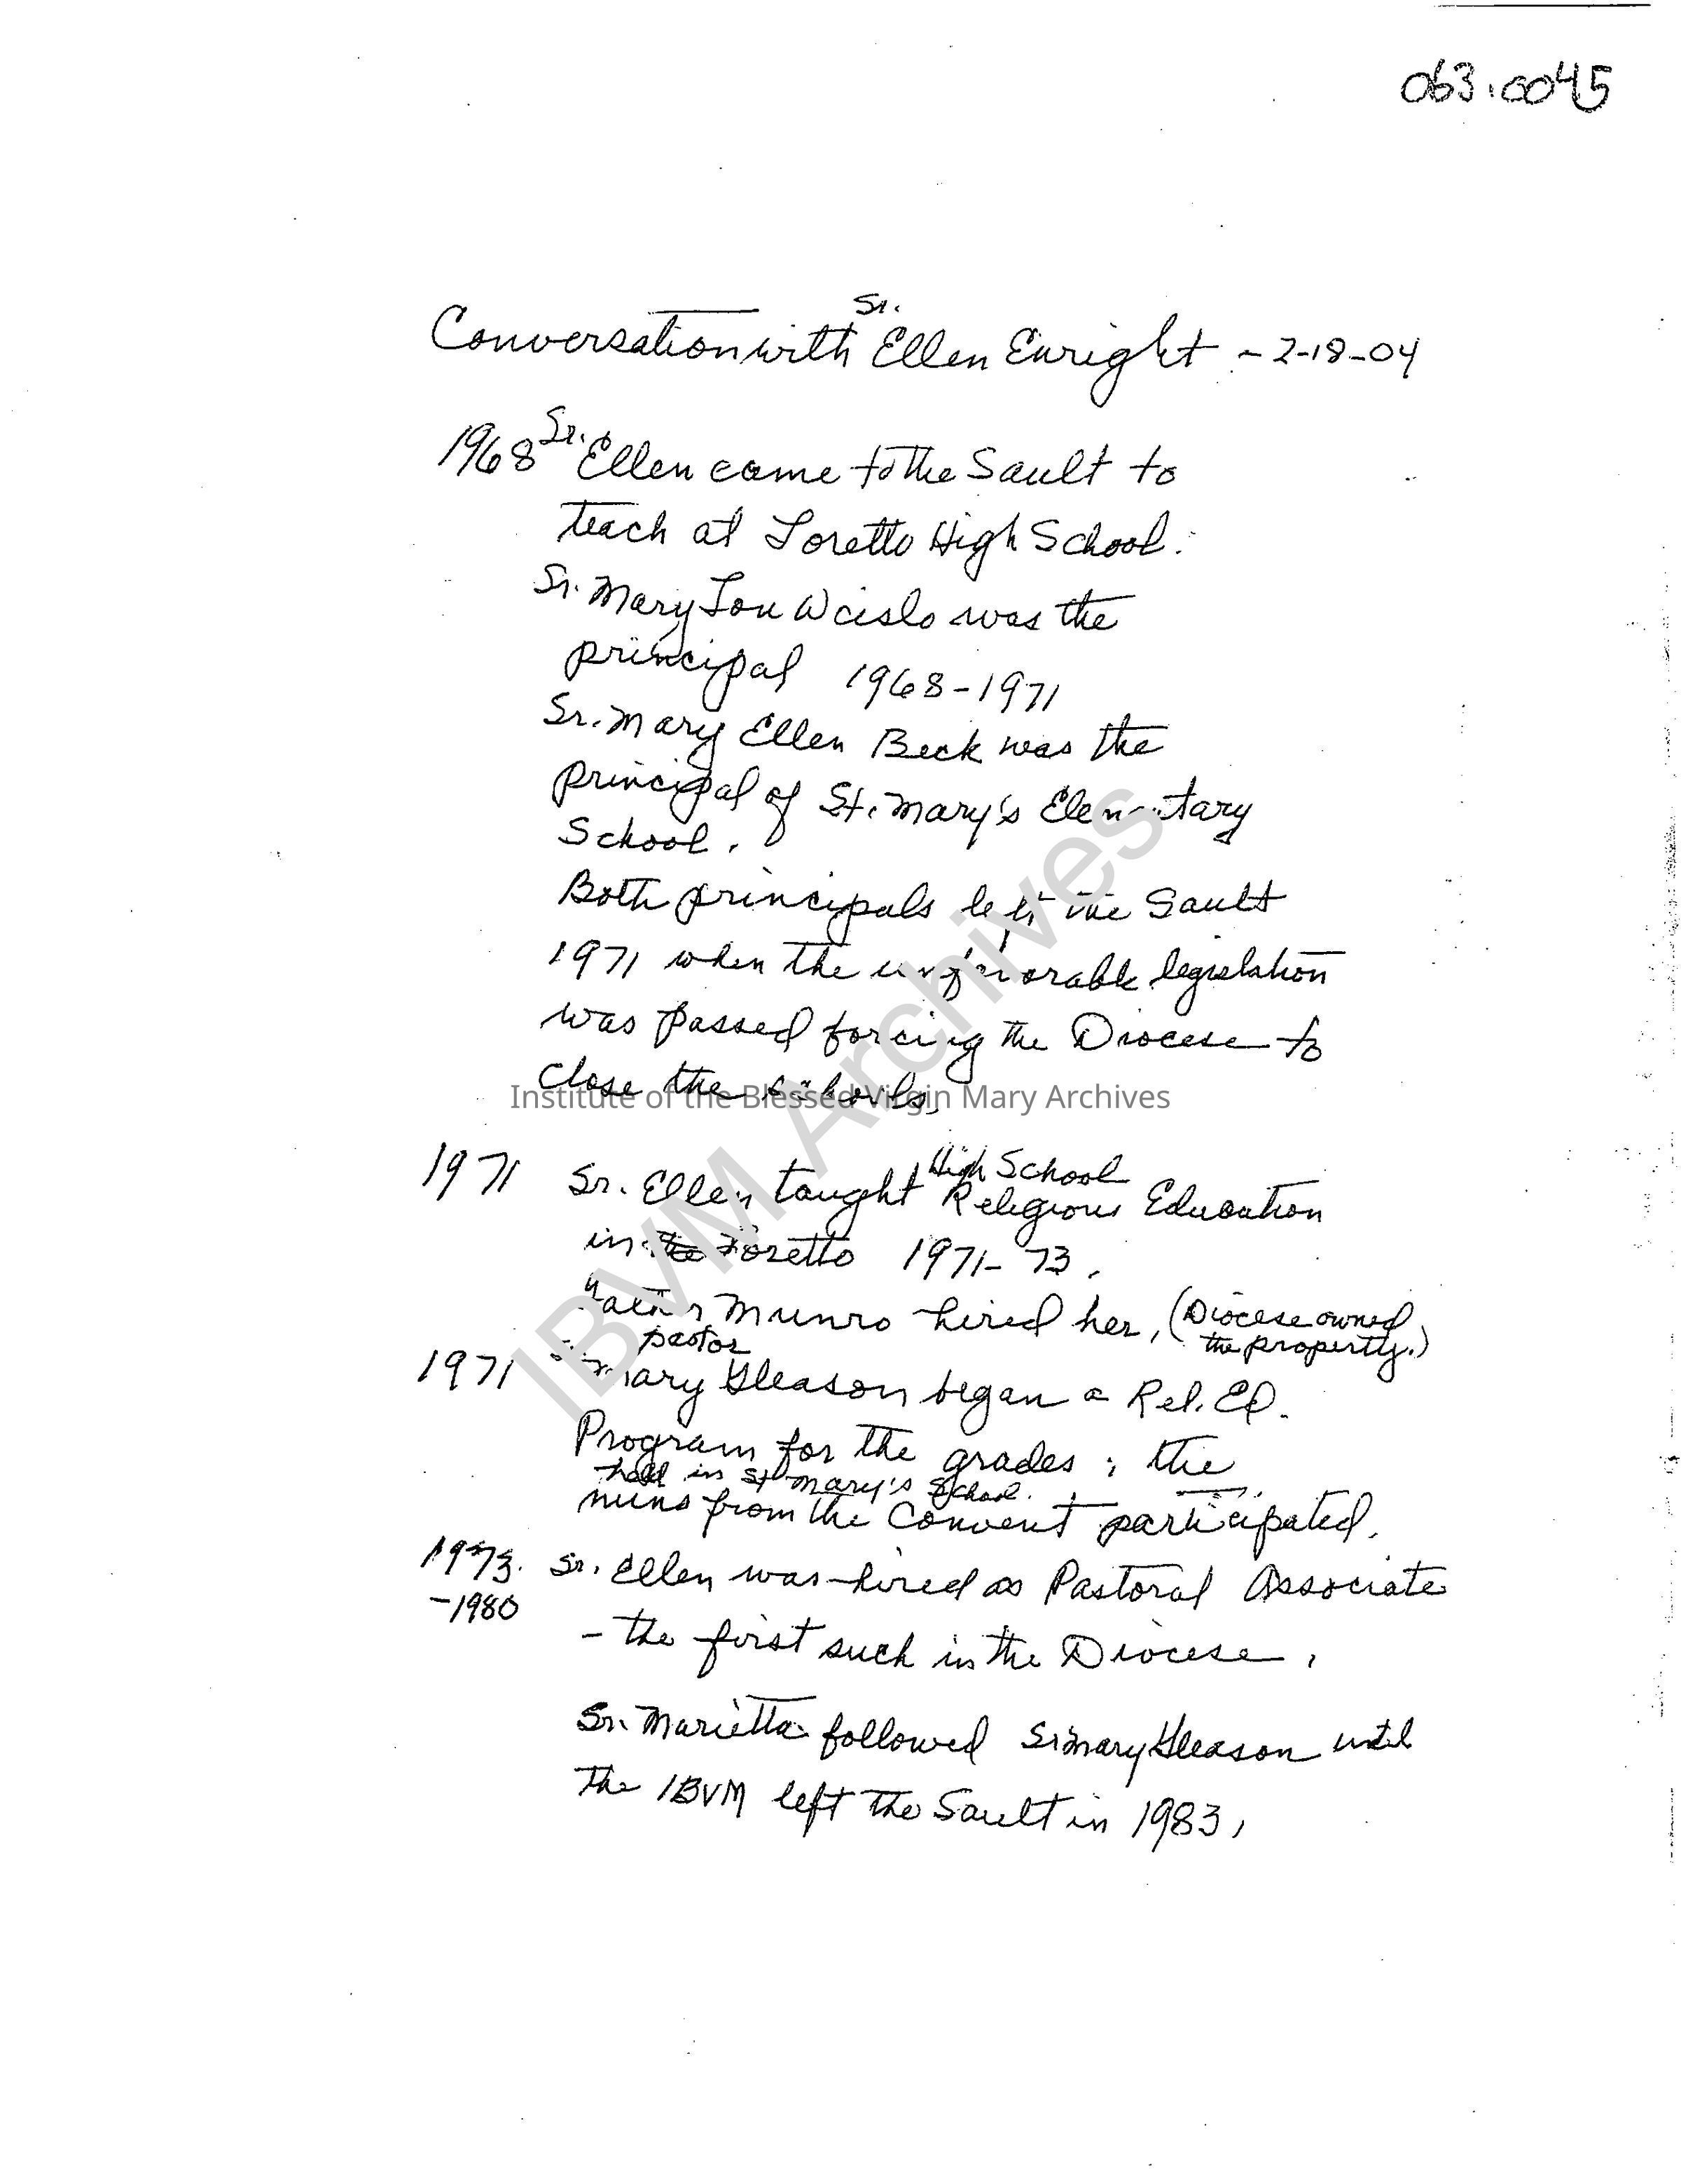 063.0045
Conversation with Sr. Ellen Enright - 2-18-04
1968 Sr. Ellen came to the Sault to
teach at Loretto High School.
Sr. Mary Lou Wcislo was the
principal 1968-1971
Sr. Mary Ellen Beck was the
principal of St. Mary's Elementary
School.
Both principals left the Sault
1971 when the unfavorable legislation
was passed forcing the Diocese to
close the schools.
Institute of the Blessed Virgin Mary Archives
IBVM Archives
High School
1971 Sr. Ellen taught Religious Education
in the Loretto 1971-73.
Father Munro hired her, (Diocese owned
pastor the property.)
1971 Sr. Mary Gleason began a Rel. Ed.
Program for the grades; the
held in St Mary's School.
nuns from the Convent participated.
1973. Sr. Ellen was hired as Pastoral Associate
-1980
- the first such in the Diocese.
Sr. Marietta followed Sr Mary Gleason until
the IBVM left the Sault in 1983.